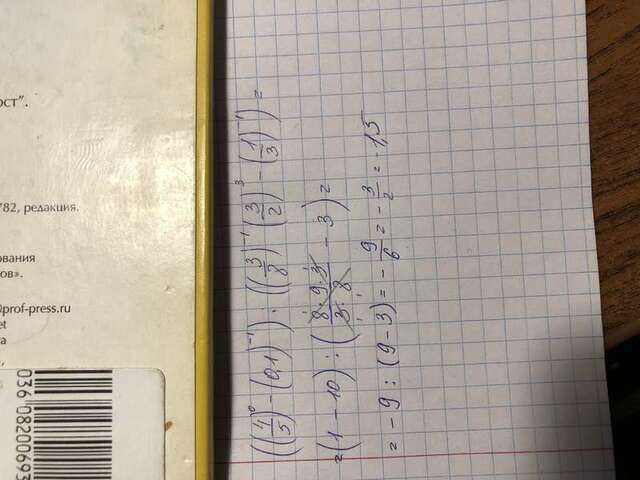 ост".
782, редакция.
ования
ов».
@prof-press.ru
et
та
036 08200693
((4/5)⁰ - (0,1)⁻¹) : ((3/8)⁻¹ (3/2)³ - (1/3)⁻¹) =
= (1 - 10) : (8·9·3/3·8 - 3) =
= -9 : (9-3) = -9/6 = -3/2 = -1,5